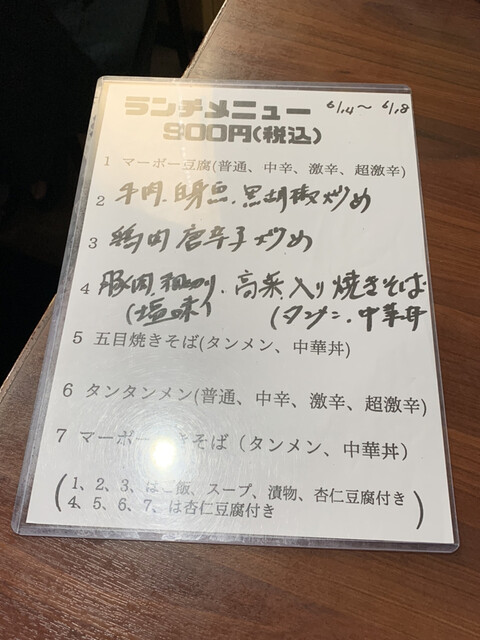 ランチメニュー 6/14〜6/18
900円(税込)
1 マーボー豆腐(普通、中辛、激辛、超激辛)
2 牛肉、白身魚、黒胡椒炒め
3 鶏肉唐辛子炒め
4 豚肉、細切り、高菜、入り焼きそば
(塩味) (タンメン、中華丼
5 五目焼きそば(タンメン、中華丼)
6 タンタンメン(普通、中辛、激辛、超激辛)
7 マーボー きそば(タンメン、中華丼)
(1、2、3、はご飯、スープ、漬物、杏仁豆腐付き
4、5、6、7、は杏仁豆腐付き)